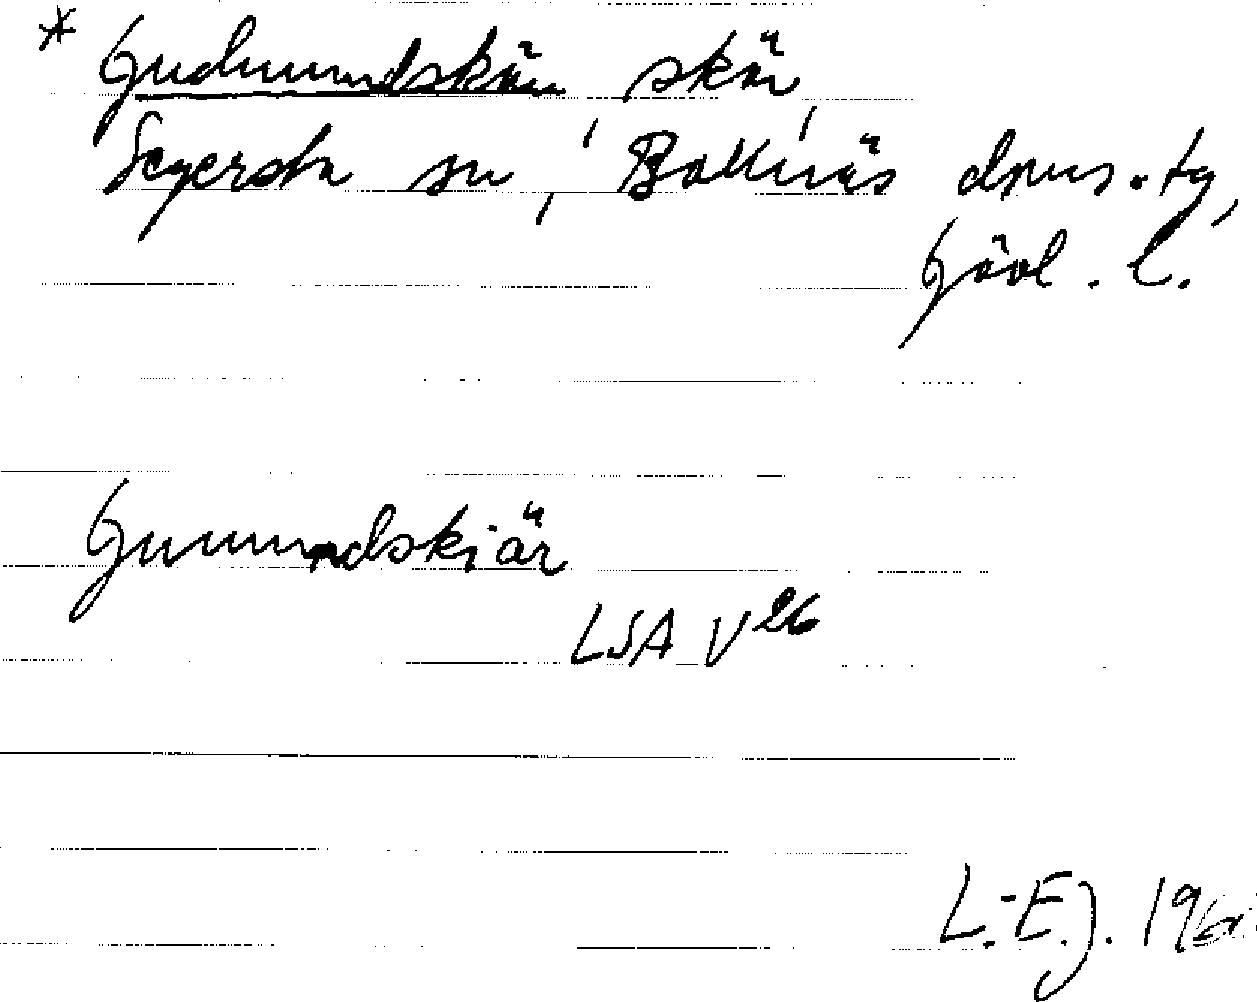 * Gudmundskär, skär,
Segersta sn, Bollnäs dms.tg,
Gävl. l.
Gummundskiär
LSA V26
L.-E.J. 196